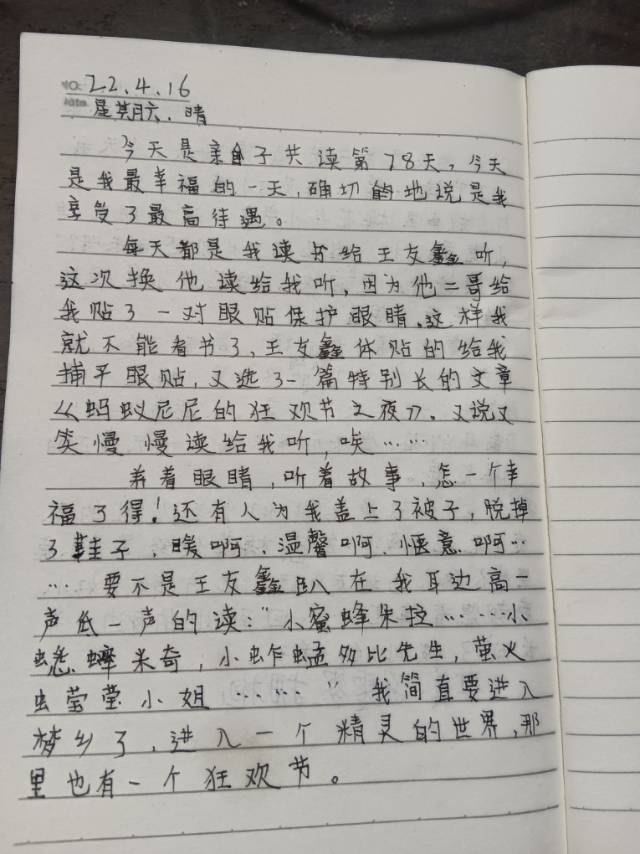 NO: 22.4.16
Date 星期六. 晴
今天是亲子共读第78天，今天
是我最幸福的一天，确切的地说是我
享受了最高待遇。
每天都是我读书给王友鑫听，
这次换他读给我听，因为他二哥给
我贴了一对眼贴保护眼睛，这样我
就不能看书了，王友鑫体贴的给我
捕平眼贴，又选了一篇特别长的文章
《蚂蚁尼尼的狂欢节之夜》．又说又
笑慢慢读给我听，唉……
养着眼睛，听着故事，怎一个幸
福了得！还有人为我盖上了被子，脱掉
了鞋子，暖啊．温馨啊．惬意啊…
…要不是王友鑫趴在我耳边高一
声低一声的读：“小蜜蜂朱拉……小
蟋蟀米奇，小蚱蜢多比先生，萤火
虫莹莹小姐……”我简直要进入
梦乡了，进入一个精灵的世界，那
里也有一个狂欢节。